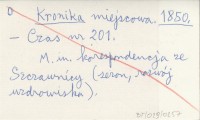 Kronika miejscowa. 1850.
- Czas nr 201.
M. in. korespondencja ze
Szczawnicy (sezon, rozwój
uzdrowiska).